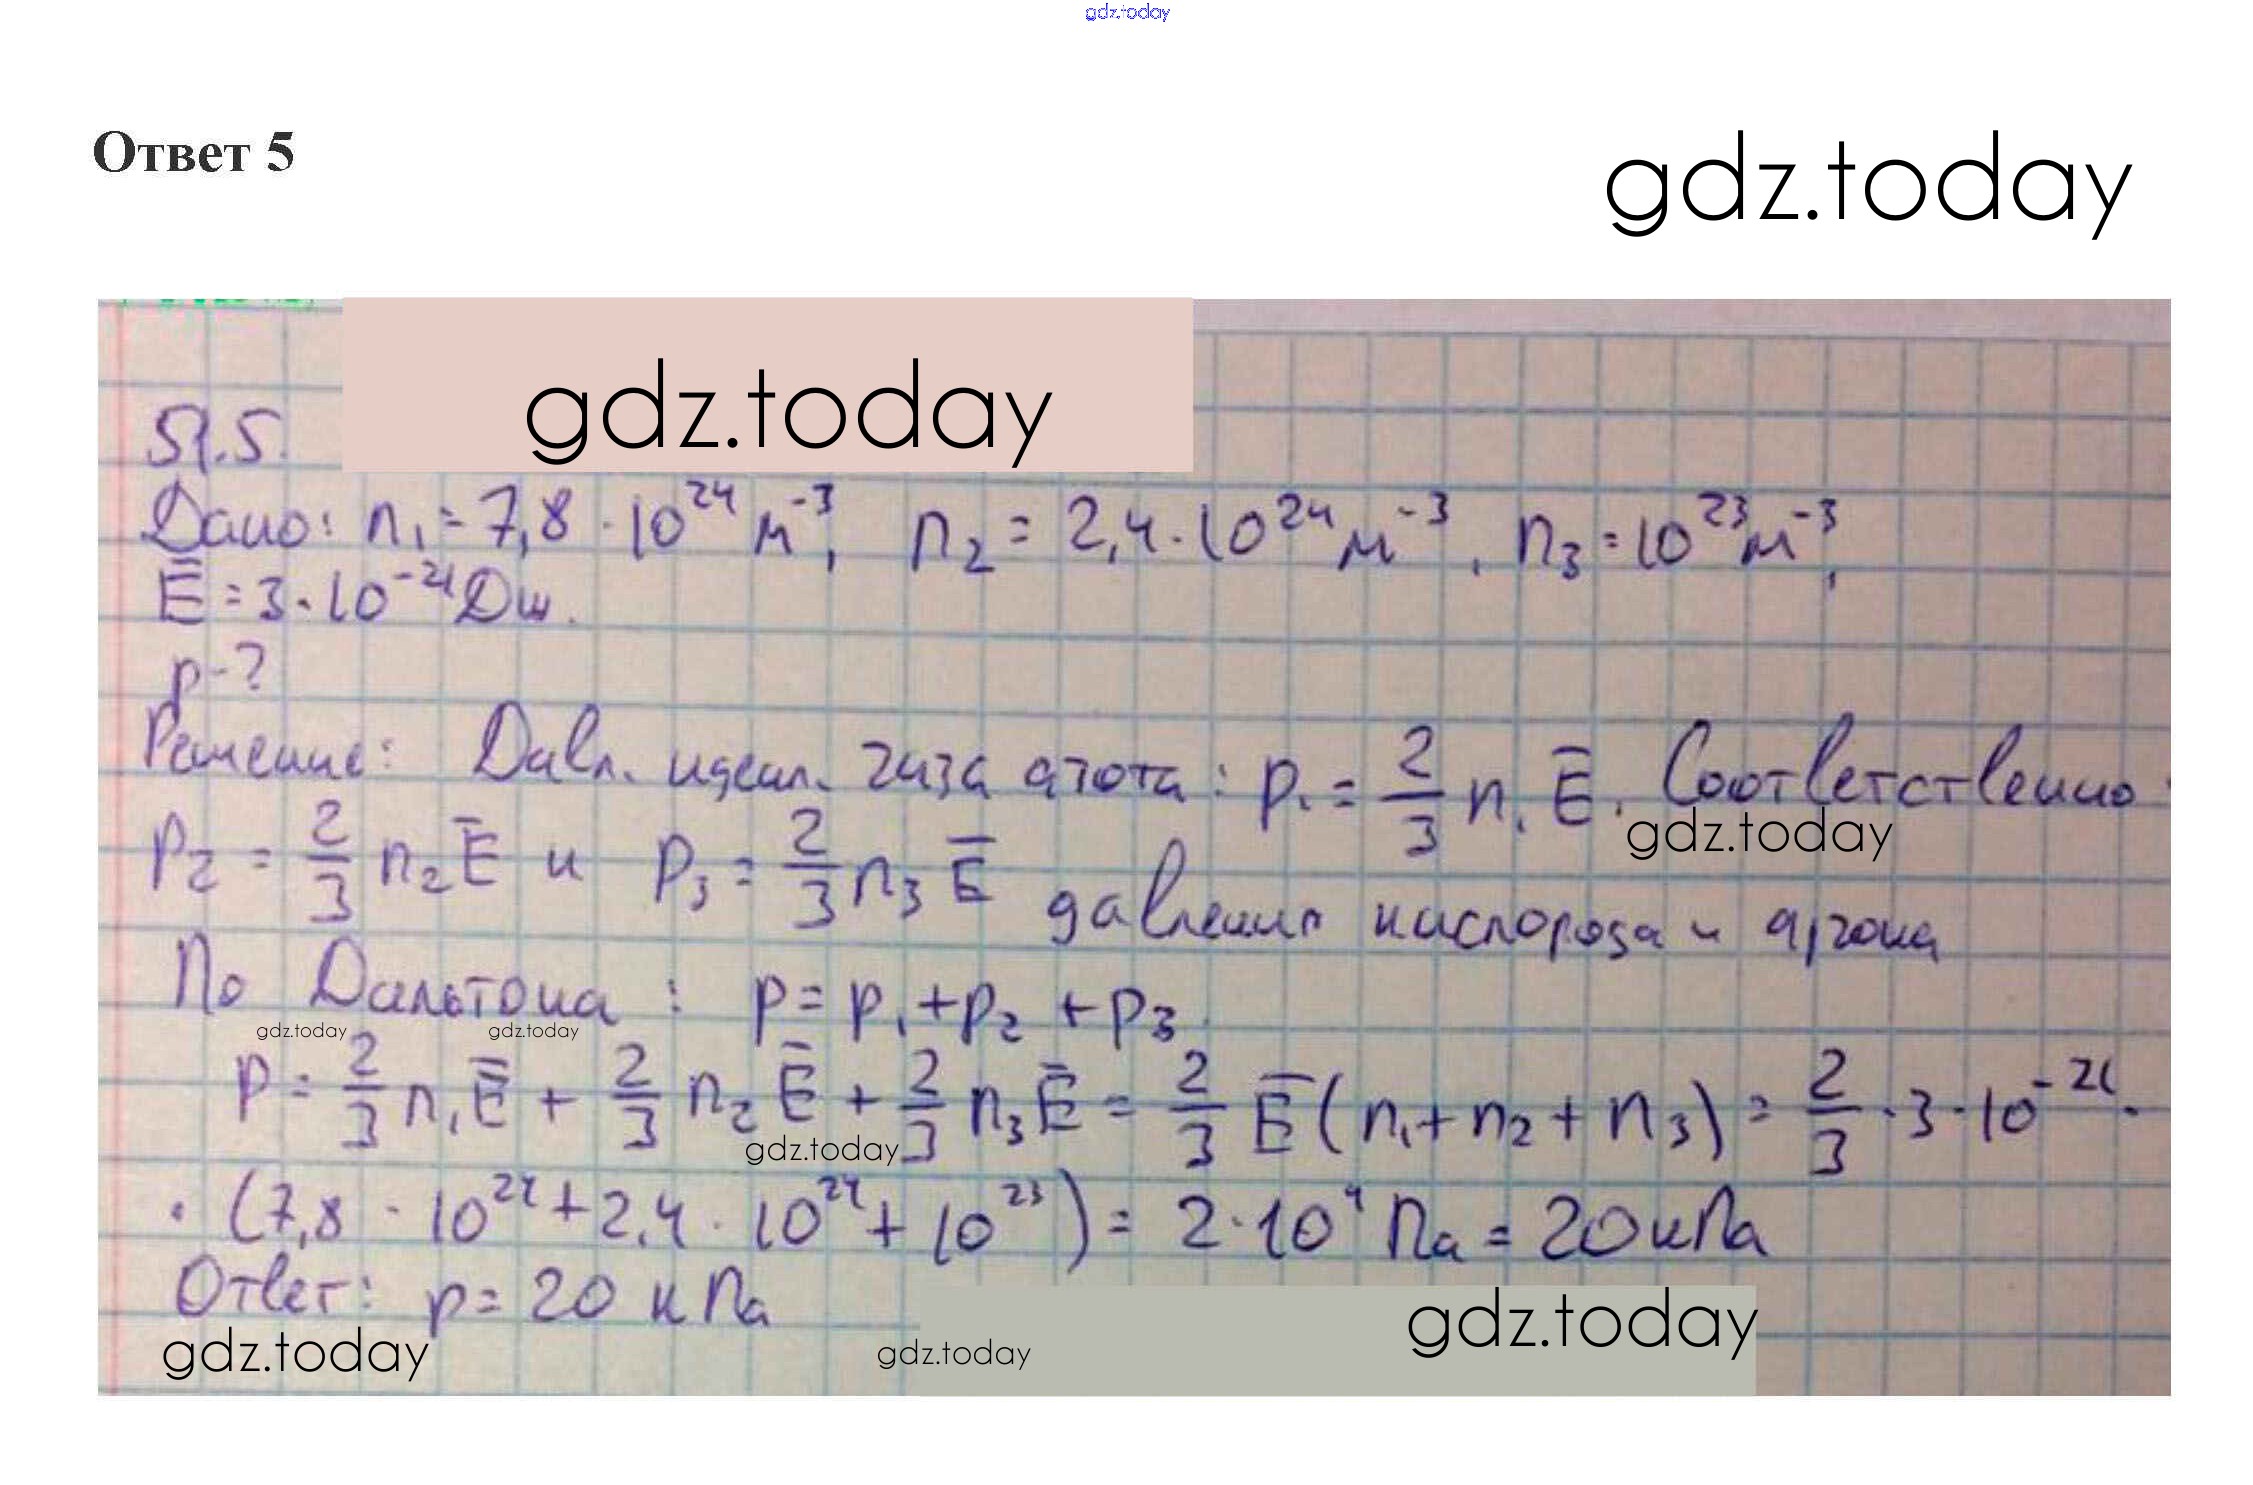 gdz.today
Ответ 5
gdz.today
gdz.today
51.5.
Дано: n₁ = 7,8 · 10²⁴ м⁻³, n₂ = 2,4 · 10²⁴ м⁻³, n₃ = 10²³ м⁻³,
E̅ = 3 · 10⁻²¹ Дж.
p - ?
Решение: Давл. идеал. газа азота: p₁ = 2/3 n₁ E̅. Соответственно
gdz.today
p₂ = 2/3 n₂ E̅ и p₃ = 2/3 n₃ E̅ давления кислорода и аргона
По Дальтона: p = p₁ + p₂ + p₃.
gdz.today gdz.today
p = 2/3 n₁ E̅ + 2/3 n₂ E̅ + 2/3 n₃ E̅ = 2/3 E̅ (n₁ + n₂ + n₃) = 2/3 · 3 · 10⁻²¹ ·
gdz.today
· (7,8 · 10²⁴ + 2,4 · 10²⁴ + 10²³) = 2 · 10⁴ Па = 20 кПа
Ответ: p = 20 кПа
gdz.today gdz.today gdz.today